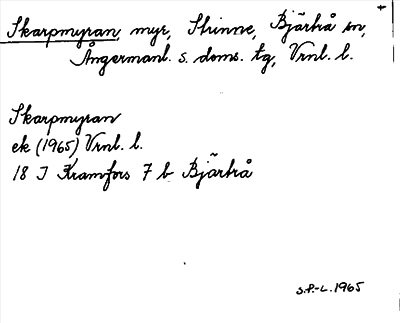 Skarpmyran, myr, Strinne, Bjärtrå sn,
Ångermanl. s. doms. tg, Vrnl. l.
Skarpmyran
ek (1965) Vrnl. l.
18 I Kramfors 7 b Bjärtrå
S.P.-L. 1965